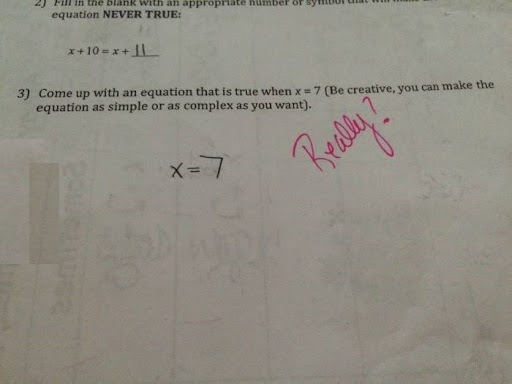 2) Fill in the blank with an appropriate number or symbol that will make
equation NEVER TRUE:
x + 10 = x + 11
3) Come up with an equation that is true when x = 7 (Be creative, you can make the
equation as simple or as complex as you want).
Really?
x = 7